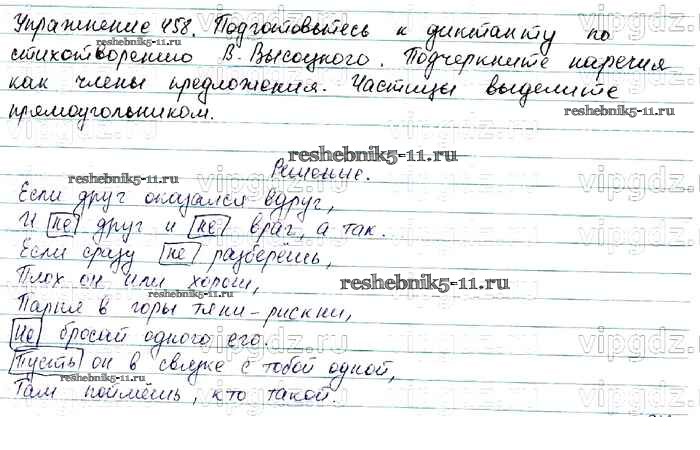 Упражнение 458. Подготовьтесь к диктанту по
стихотворению В. Высоцкого. Подчеркните наречия
как члены предложения. Частицы выделите
прямоугольником.
Решение.
Если друг оказался вдруг,
И не друг и не враг, а так.
Если сразу не разберёшь,
Плох он или хорош,
Парня в горы тяни-рискни,
Не бросай одного его.
Пусть он в связке с тобой одной,
Там поймёшь, кто такой.
reshebnik5-11.ru
reshebnik5-11.ru
reshebnik5-11.ru
reshebnik5-11.ru
reshebnik5-11.ru
reshebnik5-11.ru
reshebnik5-11.ru
vipgdz.ru
vipgdz.ru
vipgdz.ru